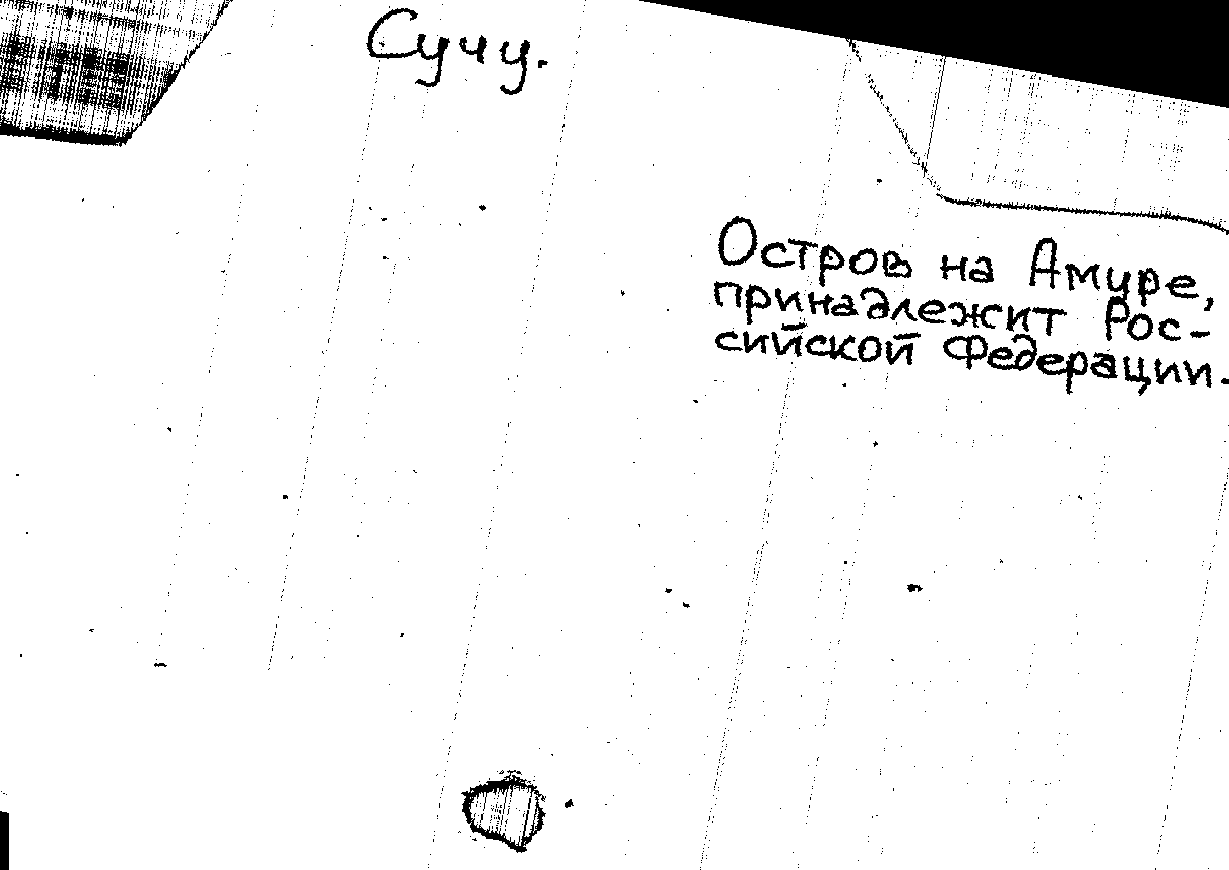 Сучу.
Остров на Амуре,
принадлежит Рос-
сийской Федерации.